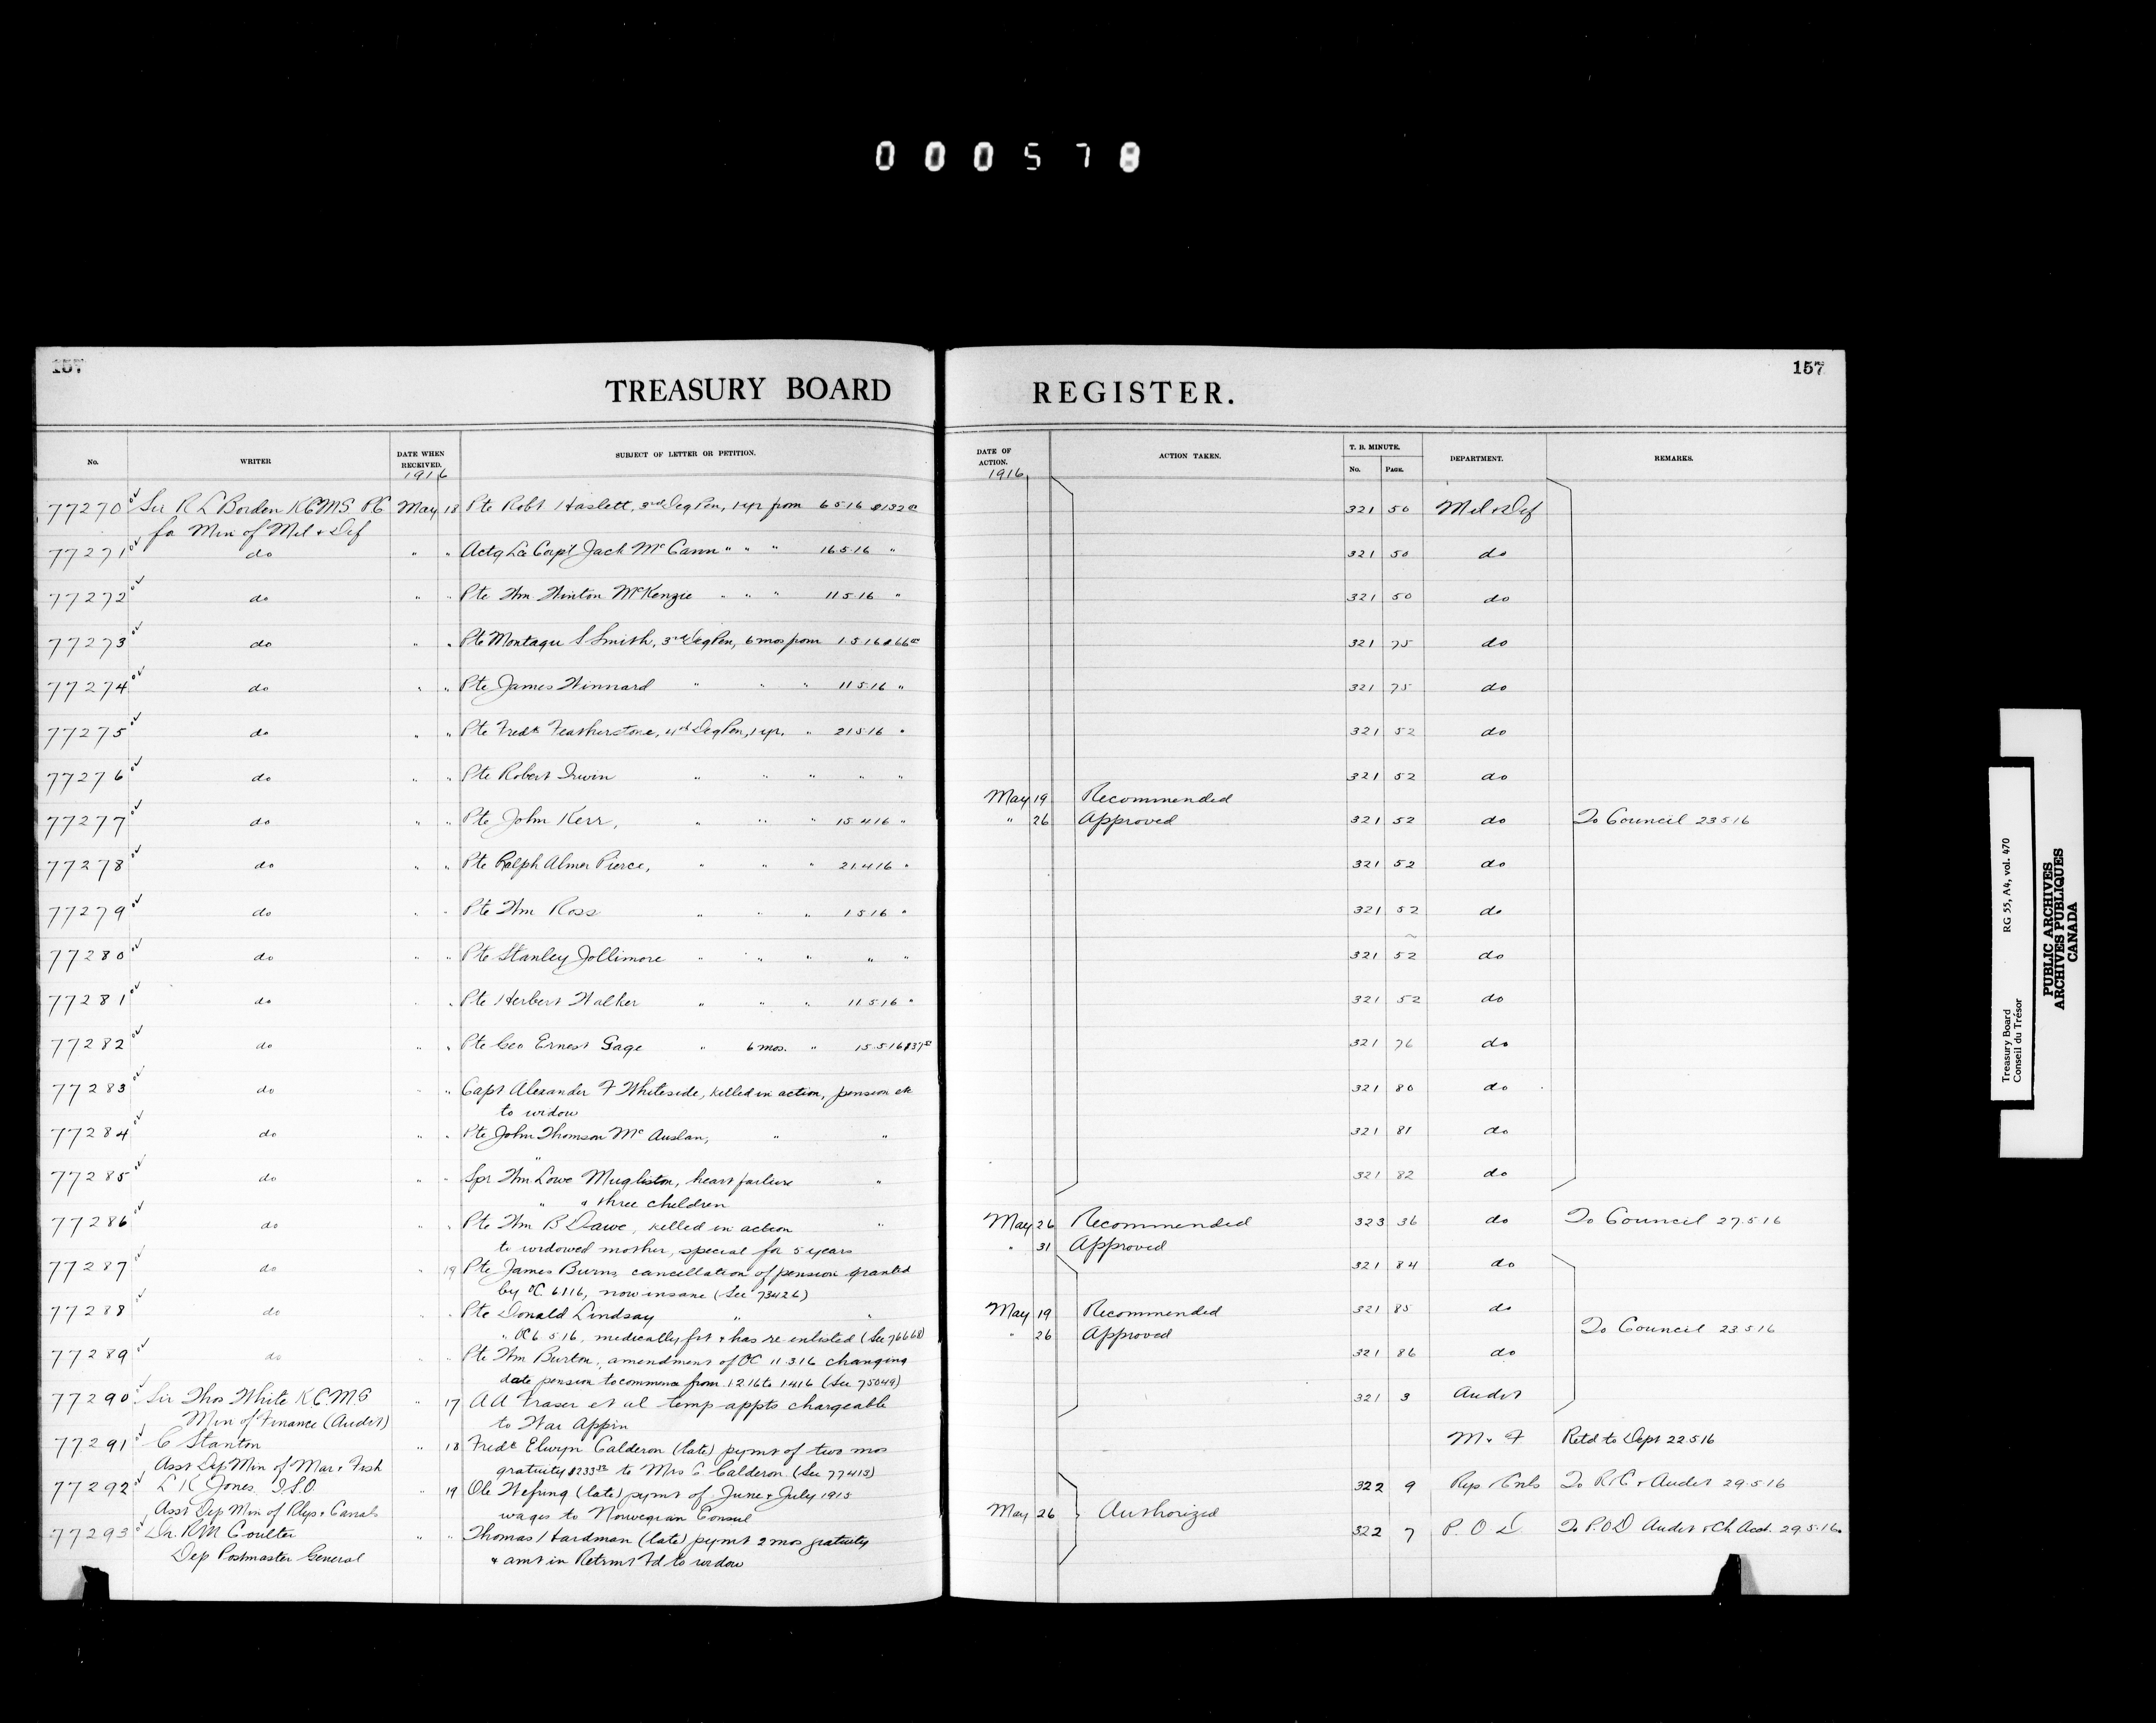 000578
157
TREASURY BOARD
REGISTER.
157
No.
WRITER
DATE WHEN RECEIVED.
SUBJECT OF LETTER OR PETITION.
DATE OF ACTION.
ACTION TAKEN.
T. B. MINUTE.
No.
PAGE.
DEPARTMENT.
REMARKS.
1916
1916
77270 Sir R L Borden KCMG PC May 18 Pte Robt Haslett, 3rd Deg Pen, 1 yr from 6 5 16 $132 321 50 Mil & Def
for Min of Mil & Def
77271 do " " Actg La Corpl Jack McCann " " " 16 5 16 " 321 50 do
77272 do " " Pte Wm Winton McKenzie " " " 11 5 16 " 321 50 do
77273 do " " Pte Montagu S Smith, 3rd Deg Pen, 6 mos from 1 5 16 $66 321 75 do
77274 do " " Pte James Winnard " " " 11 5 16 " 321 75 do
77275 do " " Pte Fredk Featherstone, 4th Deg Pen, 1 yr. " 21 5 16 " 321 52 do
77276 do " " Pte Robert Irwin " " " " " 321 52 do
May 19 Recommended
77277 do " " Pte John Kerr, " " " 15 4 16 " " 26 Approved 321 52 do To Council 23 5 16
77278 do " " Pte Ralph Almer Pierce, " " " 21 4 16 " 321 52 do
77279 do " " Pte Wm Ross " " " 1 5 16 " 321 52 do
77280 do " " Pte Stanley Jollimore " " " " " 321 52 do
77281 do " " Pte Herbert Walker " " " 11 5 16 " 321 52 do
77282 do " " Pte Geo Ernest Gage " 6 mos. " 15 5 16 $37 321 76 do
77283 do " " Capt Alexander F Whiteside, killed in action, pension etc 321 80 do
to widow
77284 do " " Pte John Thomson McAuslan, " " 321 81 do
"
77285 do " " Spr Wm Lowe Mugliston, heart failure " 321 82 do
" " & three children
77286 do " " Pte Wm B Dawe, killed in action " May 26 Recommended 323 36 do To Council 27 5 16
to widowed mother, special for 5 years " 31 Approved
77287 do " 19 Pte James Burns cancellation of pension granted 321 84 do
by OC 6 1 16, now insane (See 73426)
77288 do " " Pte Donald Lindsay " " May 19 Recommended 321 85 do
" OC 6 5 16, medically fit & has re-enlisted (See 76668) " 26 Approved To Council 23 5 16
77289 do " " Pte Wm Burton, amendment of OC 11 3 16 changing 321 86 do
date pension to commence from 1 2 16 to 1 4 16 (See 75049)
77290 Sir Thos White K.C.M.G " 17 A A Fraser et al temp appts chargeable 321 3 Audit
Min of Finance (Audit) to War Appn
77291 C Stanton " 18 Fredk Elwyn Calderon (late) pymt of two mos M & F Retd to Dept 22 5 16
Asst Dep Min of Mar & Fish gratuity $233 to Mrs C. Calderon (See 77415)
77292 L K Jones I.S.O. " 19 Ole (late) pymt of June & July 1915 322 9 Rys & Cnls To R & C & Audit 29 5 16
Asst Dep Min of Rlys & Canals wages to Norwegian Consul May 26 Authorized
77293 Dr. R M Coulter " " Thomas Hardman (late) pymt 2 mos gratuity 322 7 P. O D To P.O.D Audit & Ch Acct. 29.5.16
Dep Postmaster General & amt in Retrmt Fd to widow
Treasury Board RG 55, A4, vol. 470
Conseil du Trésor
PUBLIC ARCHIVES
ARCHIVES PUBLIQUES
CANADA